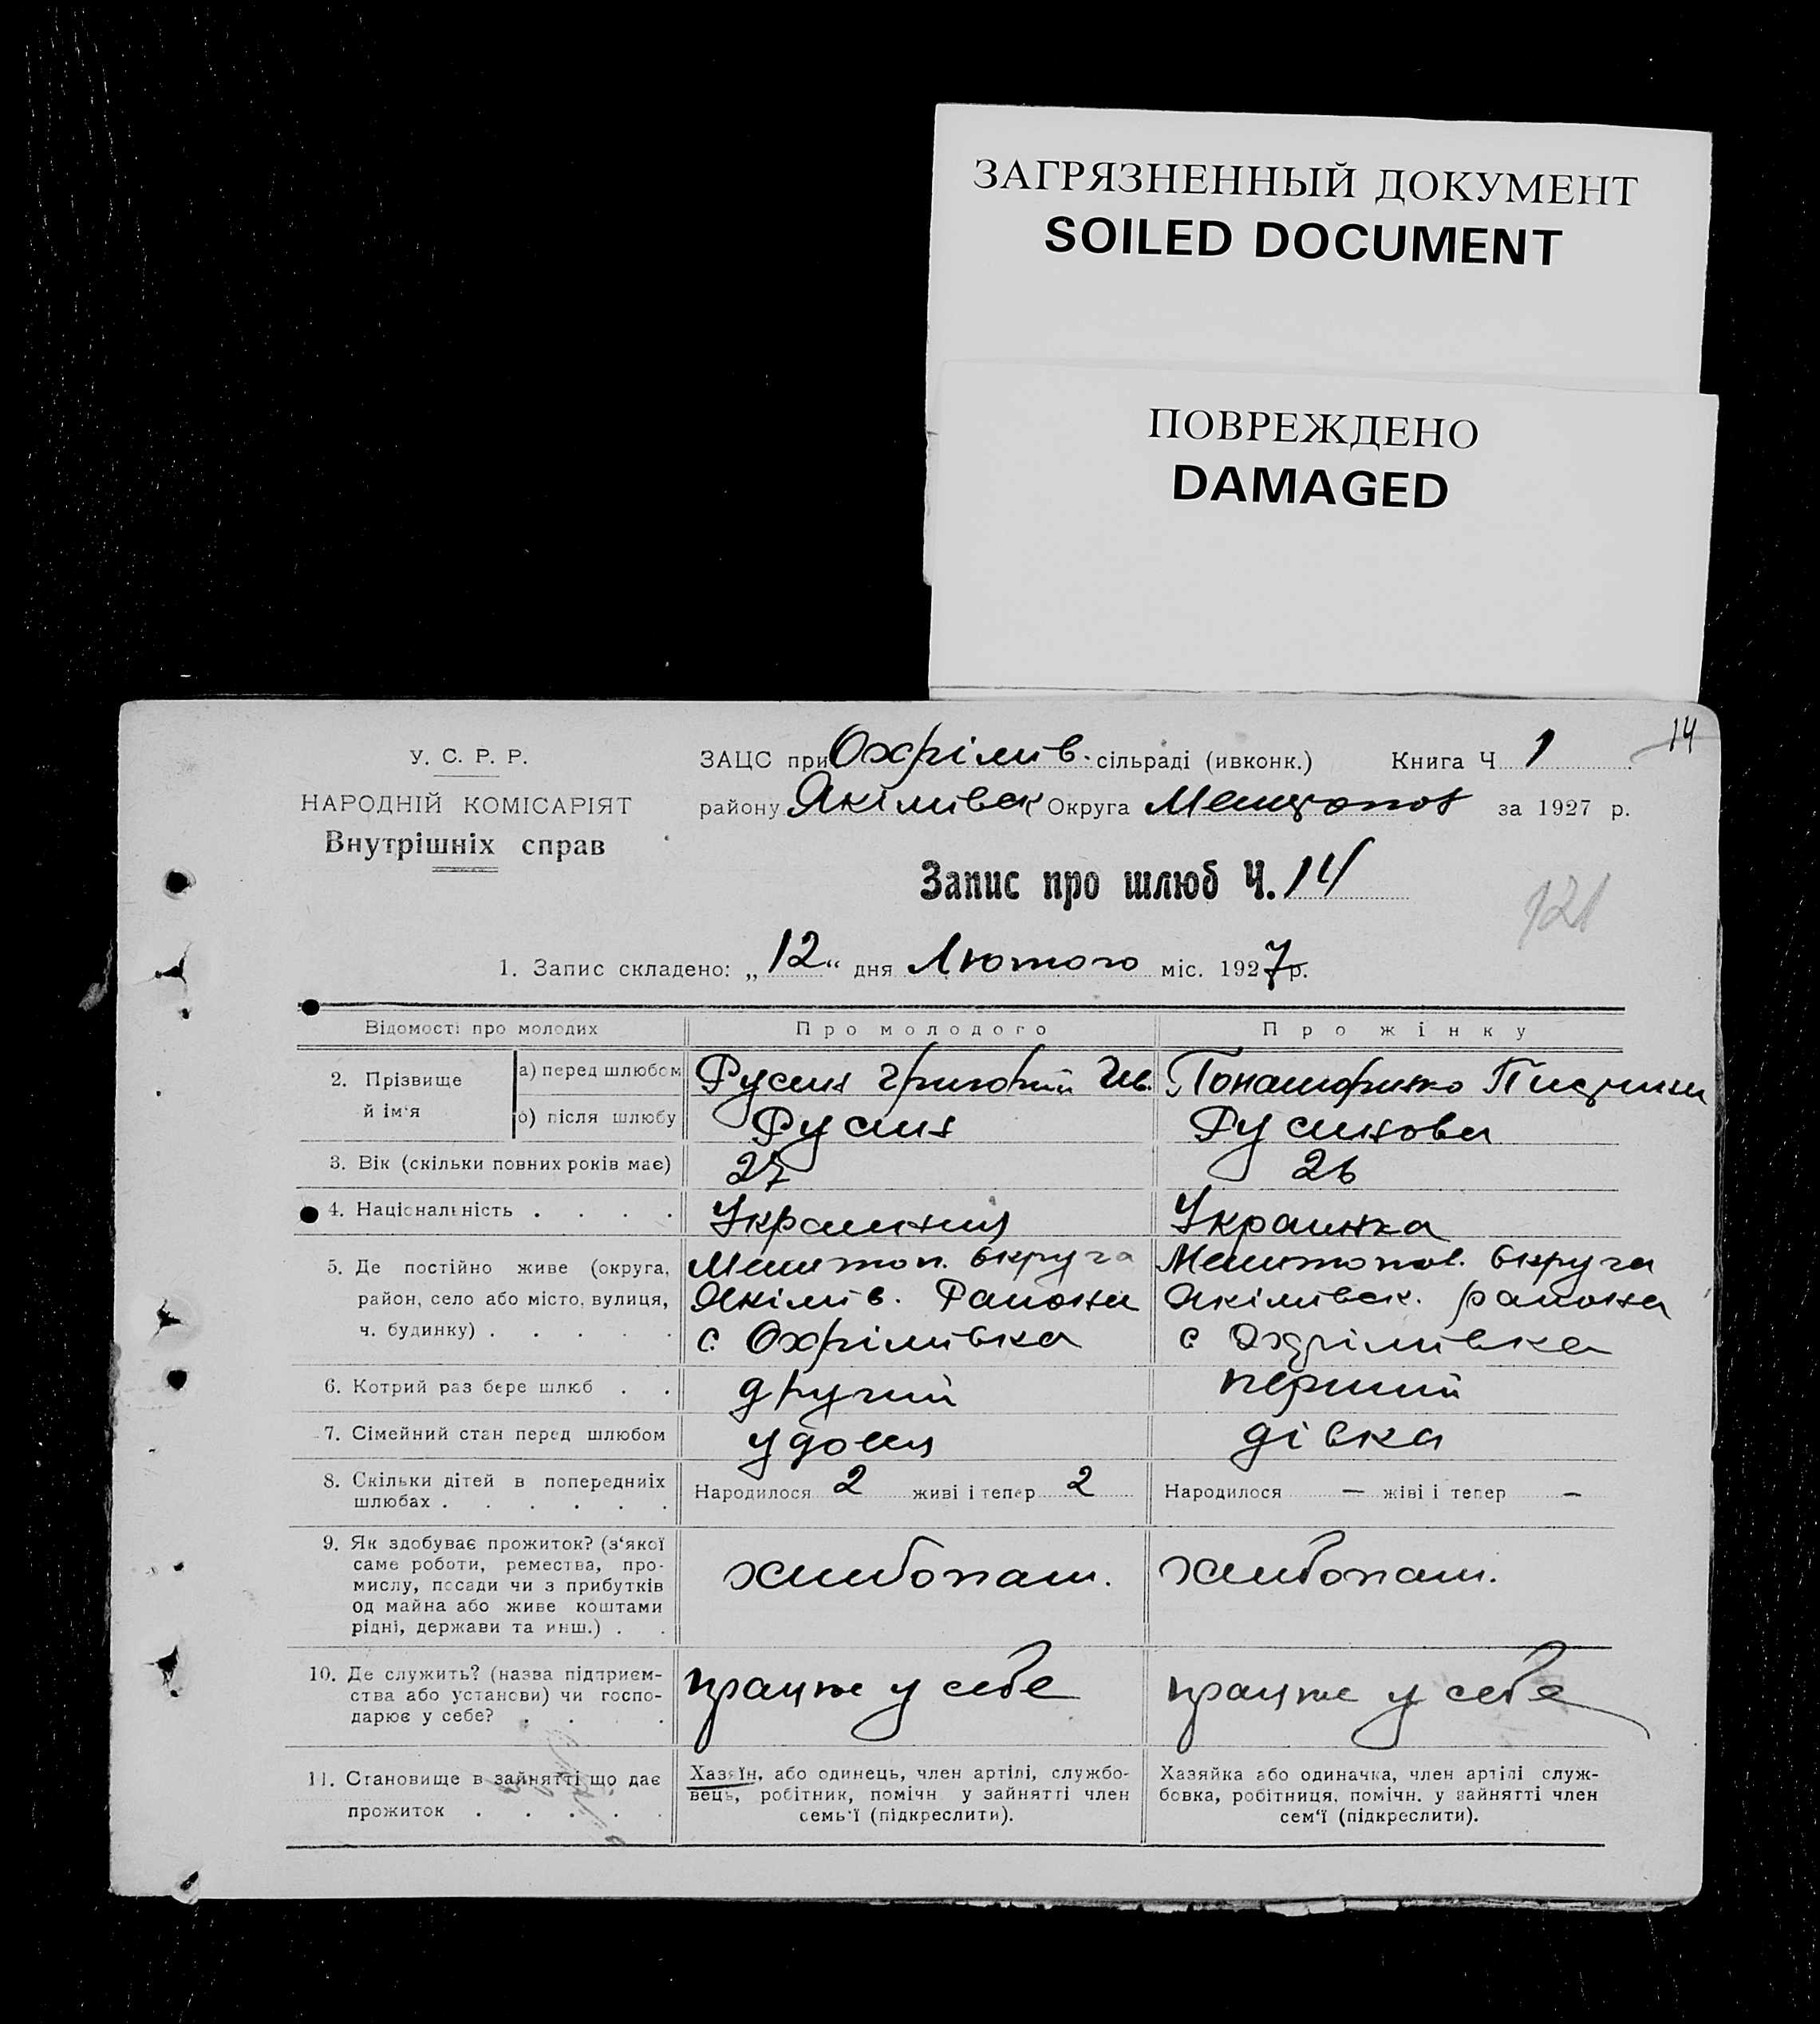 ЗАГРЯЗНЕННЫЙ ДОКУМЕНТ
SOILED DOCUMENT
ПОВРЕЖДЕНО
DAMAGED
14
У. С. Р. Р.
НАРОДНІЙ КОМІСАРІЯТ
Внутрішніх справ
ЗАЦС при Охрімів. сільраді (ивконк.) Книга Ч 1
району Якімівськ Округа Меліtопол за 1927 р.
Запис про шлюб Ч. 14
121
1. Запис складено: „12“ дня Лютого міс. 1927 р.
Відомості про молодих Про молодого Про жінку
2. Прізвище й ім‘я
а) перед шлюбом Русин Григорій Ив.
о) після шлюбу Русин Русинова
3. Вік (скільки повних років має) 27 26
4. Національність . . . . Украинец Украинка
5. Де постійно живе (округа, район, село або місто, вулиця, ч. будинку) . . . . .
Мелитоп. округа Мелитопол. округа
Якімів. Района Якімівск. района
с. Охрімівка с Охрімівка
6. Котрий раз бере шлюб . . другий перший
7. Сімейний стан перед шлюбом удовец дівка
8. Скільки дітей в попередниіх шлюбах . . . . . .
Народилося 2 живі і тепер 2 Народилося — жіві і тепер —
9. Як здобуває прожиток? (з‘якої
саме роботи, ремества, про-
мислу, посади чи з прибутків
од майна або живе коштами
рідні, держави та инш.) . .
хлибопаш. хлибопаш.
10. Де служить? (назва підприєм-
ства або установи) чи госпо-
дарює у себе? . . . .
працює у себе працює у себе
11. Становище в зайнятті що дає
прожиток . . . . .
Хазяїн, або одинець, член артілі, службо-
вець, робітник, помічн у зайнятті член
семь‘ї (підкреслити).
Хазяйка або одиначка, член артілі служ-
бовка, робітниця, помічн. у зайнятті член
сем‘ї (підкреслити).